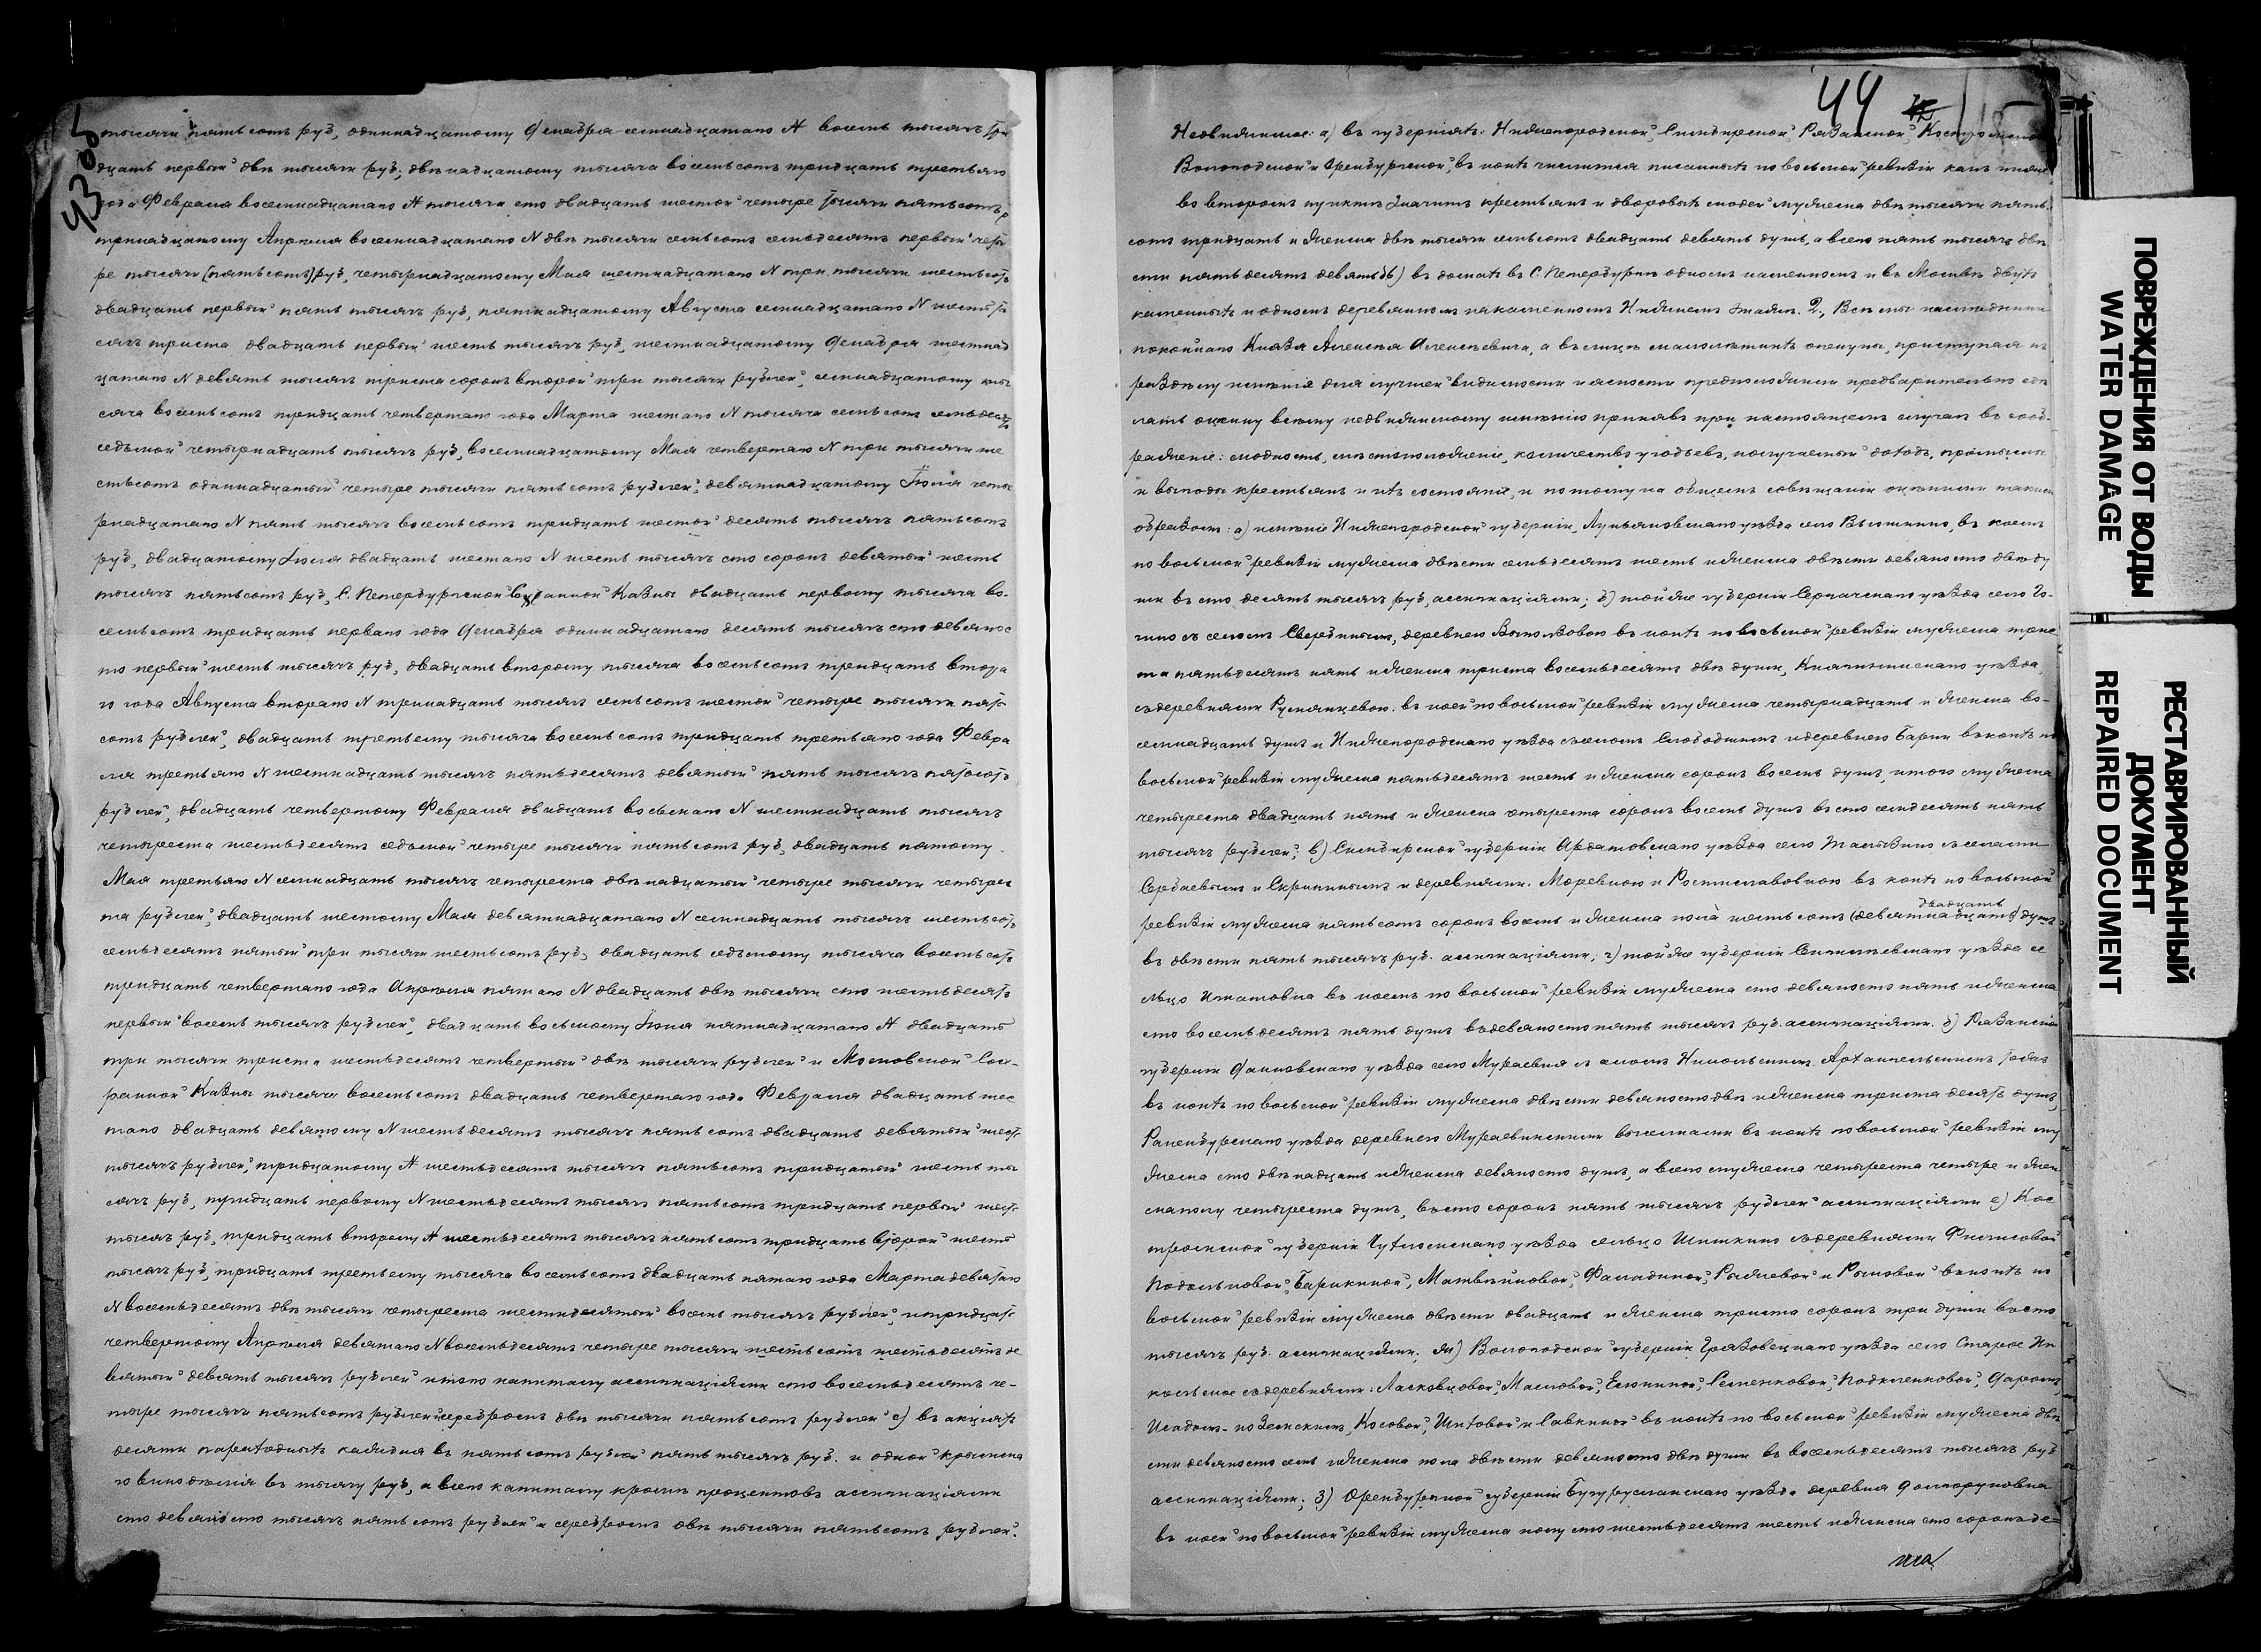 43об
тысячи пять сотъ руб, одиннадцатому Декабря семнадцатаго N восемь тысячъ три
дцать первый двѣ тысячи руб; двѣнадцатому тысяча восемьсотъ тридцать третьяго
года Февраля восемнадцатаго N тысяча сто двадцать шестой четыре тысячи пять сотъ р
тринадцатому Апрѣля восемнадцатаго N двѣ тысячи семьсотъ семьдесятъ первый четы
ре тысячи (пять сотъ) руб, четырнадцатому Мая шестнадцатаго N три тысячи шесть сотъ
двадцать первый пять тысячъ руб, пятнадцатому Августа семнадцатаго N шесть ты
сячъ триста двадцать первый шесть тысячъ руб, шестнадцатому Декабря шестнад
цатаго N девять тысячъ триста сорокъ второй три тысячи рублей, семнадцатому ты
сяча восемьсотъ тридцать четвертаго года Марта шестаго N тысяча семьсотъ семьдесятъ
седьмой четырнадцать тысячъ руб, восемнадцатому Мая четвертаго N три тысячи ше
стьсотъ одиннадцатый четыре тысячи пять сотъ рублей, девятнадцатому Іюня четы
рнадцатаго N пять тысячъ восемьсотъ тридцать шестой десять тысячъ пятьсотъ
руб, двадцатому Іюля двадцать шестаго N шесть тысячъ сто сорокъ девятый шесть
тысячъ пятьсотъ руб, С. Петербургской Сохранной Казны двадцать первому тысяча во-
семьсотъ тридцать перваго года Декабря одиннадцатаго десять тысячъ сто девянос
то первый шесть тысячъ руб, двадцать второму тысяча восемьсотъ тридцать втора
го года Августа втораго N тринадцать тысячъ семьсотъ шестой четыре тысячи пять
сотъ рублей, двадцать третьему тысяча восемьсотъ тридцать третьяго года Февра
ля третьяго N шестнадцать тысячъ пятьдесятъ девятый пять тысячъ пятьсотъ
рублей, двадцать четвертому Февраля двадцать восьмаго N шестнадцать тысячъ
четыреста шестьдесятъ седьмой четыре тысячи пять сотъ руб, двадцать пятому
Мая третьяго N семнадцать тысячъ четыреста двѣнадцатый четыре тысячи четырес
та рублей, двадцать шестому Мая девятнадцатаго N семнадцать тысячъ шестьсотъ
семьдесятъ пятый три тысячи шестьсотъ руб, двадцать седьмому тысяча восемьсотъ
тридцать четвертаго года Апрѣля пятаго N двадцать двѣ тысячи сто шестьдесятъ
первый восемь тысячъ рублей, двадцать восьмому Іюня пятнадцатаго N двадцать
три тысячи триста шестьдесятъ четвертый двѣ тысячи рублей и Московской Сох-
ранной Казны тысяча восемьсотъ двадцать четвертаго года Февраля двадцать шес
таго двадцать девятому N шестьдесятъ тысячъ пять сотъ двадцать девятый шесть
тысячъ рублей, тридцатому N шестьдесятъ тысячъ пятьсотъ тридцатый шесть ты
сячъ руб, тридцать первому N шестьдесятъ тысячъ пятьсотъ тридцать первый шесть
тысячъ руб, тридцать второму N шестьдесятъ тысячъ пятьсотъ тридцать второй шесть
тысячъ руб, тридцать третьему тысяча восемьсотъ двадцать пятаго года Марта девятаго
N восемьдесятъ двѣ тысячи четыреста шестидесятый восемь тысячъ рублей, и тридцать
четвертому Апрѣля девятаго N восемьдесятъ четыре тысячи шестьсотъ шестьдесятъ де
вятый девять тысячъ рублей итого капиталу ассигнаціями сто восемьдесятъ че-
тыре тысячи пятьсотъ рублей и серебромъ двѣ тысячи пять сотъ рублей с) въ акціяхъ
десяти пароходныхъ каждая въ пятьсотъ рублей пять тысячъ руб. и одной Крымска
го винодѣлія въ тысячу руб, а всего капиталу кромѣ процентовъ ассигнаціями
сто девяносто тысячъ пятьсотъ рублей и серебромъ двѣ тысячи пятьсотъ рублей.
44
Недвижимое: а) въ губерніяхъ: Нижегородской, Симбирской, Рязанской, Костромской
Вологодской и Оренбургской, въ коихъ числится писанныхъ по восьмой ревизіи какъ ниже
во второмъ пунктѣ значитъ крестьянъ и дворовыхъ людей мужеска двѣ тысячи пять-
сотъ тридцать и женска двѣ тысячи семьсотъ двадцать девять душъ, а всего пять тысячъ двѣ
сти пятьдесятъ девять; b) въ домахъ въ С. Петербургѣ одномъ каменномъ и въ Москвѣ двухъ
каменныхъ и одномъ деревянномъ на каменномъ Нижнемъ этажѣ. 2., Всѣ мы наслѣдники
покойнаго Князя Алексѣя Алексѣевича, а въ лицѣ малолѣтнихъ опекуны, приступая къ
раздѣлу имѣнія для лучшей видимости и ясности предположили предварительно сдѣ
лать оцѣнку всему недвижимому имѣнію принявъ при настоящемъ случаѣ въ сооб-
раженіе: людность, мѣстоположеніе, количество угодьевъ, получаемый доходъ, промыслы
и выгоды крестьянъ и ихъ состояніе, и потому на общемъ совѣщаніи оцѣнили такимъ
образомъ: а) имѣніе Нижегородской губерніи, Лукьяновскаго уѣзда село Вьюшкино, въ коемъ
по восьмой ревизіи мужеска двѣсти семьдесятъ шесть и женска двѣсти девяносто двѣ ду
ши въ сто десять тысячъ руб, ассигнаціями; б) той же губерніи Сергачскаго уѣзда село
гино съ селомъ деревнею въ коихъ по восьмой ревизіи мужеска трис
та пятьдесятъ пять и женска триста восемьдесятъ двѣ души, Княгининскаго уѣзда
съ деревнями Румянцевою. въ коей по восьмой ревизіи мужеска четырнадцать и женска во-
семнадцать душъ и Нижегородскаго уѣзда съ селомъ Слободскимъ и деревнею въ коихъ по
восьмой ревизіи мужеска пятьдесятъ шесть и женска сорокъ восемь душъ, итого мужеска
четыреста двадцать пять и женска четыреста сорокъ восемь душъ въ сто семдесятъ пять
тысячъ рублей; в) Симбирской губерніи Ардатовскаго уѣзда село Талызино съ селами
Сербаевымъ и Скрипинымъ и деревнями: Моревкою и Ростиславовкою въ коихъ по восьмой
двадцать
ревизіи мужеска пятьсотъ сорокъ восемь и женска пола шесть сотъ (девятнадцать) душъ
въ двѣсти пять тысячъ руб. ассигнаціями; г) той же губерніи уѣзда се
льцо Игнатовка въ коемъ по восьмой ревизіи мужеска сто девяносто пять и женска
сто восемьдесятъ пять душъ въ девяносто пять тысячъ руб. ассигнаціями. д) Рязанской
губерніи Данковскаго уѣзда село Мураевня съ Никольскимъ Архангельскимъ тожъ
въ коихъ по восьмой ревизіи мужеска двѣсти девяносто двѣ и женска триста десять душъ,
Раненбургскаго уѣзда деревнею Мураевинскими выселками въ коихъ по восьмой ревизіи му
жеска сто двѣнадцать и женска девяносто душъ, а всего мужеска четыреста четыре и жен
ска полу четыреста душъ, въ сто сорокъ пять тысячъ рублей ассигнаціями е) Кос
тромской губерніи Чухломскаго уѣзда сельцо Шишкино съ деревнями
Матвѣйковой, и въ коихъ по
восьмой ревизіи мужеска двѣсти двадцать и женска триста сорокъ три души въ сто
тысячъ руб. ассигнаціями; ж) Вологодской губерніи Грязовецкаго уѣзда село Старое Ни
кольское съ деревнями: и въ коихъ по восьмой ревизіи мужеска двѣ
сти девяносто семь и женска пола двѣсти девяносто двѣ души въ восемьдесятъ тысячъ руб
ассигнаціями; з) Оренбургской губерніи Бугурусланскаго уѣзда деревня Долгоруковка
въ коей по восьмой ревизіи мужеска полу сто шестьдесятъ шесть и женска сто сорокъ де=
ПОВРЕЖДЕНИЯ ОТ ВОДЫ
WATER DAMAGE
РЕСТАВРИРОВАННЫЙ
ДОКУМЕНТ
REPAIRED DOCUMENT